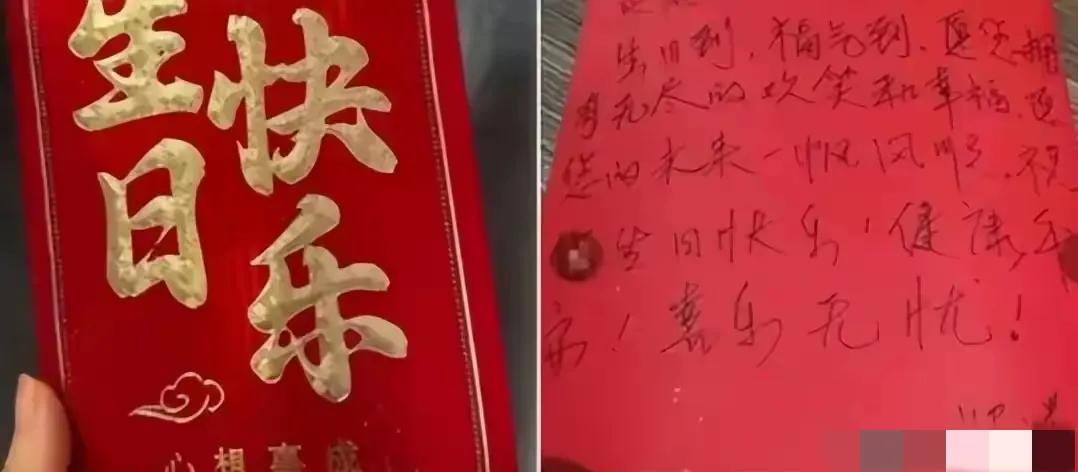 生日
快乐
心想事成
生日到,福气到,愿您拥
有无尽的欢笑和幸福,愿
您的未来一帆风顺,祝
生日快乐!健康平
安!喜乐无忧!